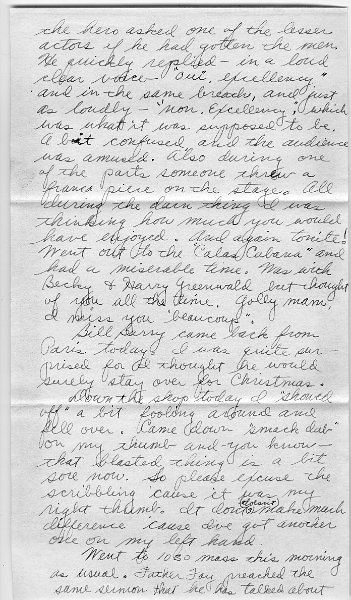 the hero asked one of the lesser
actors if he had gotten the men.
He quickly replied - in a loud
clear voice - "oui, excellency"
and in the same breach, and just
as loudly - "non, excellency", which
was what it was supposed to be.
A bit confused, and the audience
was amused. Also during one
of the parts someone threw a
franca piece on the stage. All
during the darn thing I was
thinking how much you would
have enjoyed. And again tonite!
Went out to the "Calas Cabana" and
had a miserable time. Was with
Becky & Harry Greenwald but thought
of you all the time. Golly mam,
I miss you "beaucoup".
Bill Serry came back from
Paris today. I was quite sur-
prised for I thought he would
surely stay over for Christmas.
Down the shop today I "showed
off" a bit fooling around and
fell over. Came down "smack dub"
on my thumb and - you know -
that blasted thing is a bit
sore now. So please excuse the
scribbling cause it was my
right thumb. It dont doesnt make much
difference cause I've got another
one on my left hand.
Went to 1030 mass this morning
as usual. Father Fay preached the
same sermon that he has talked about